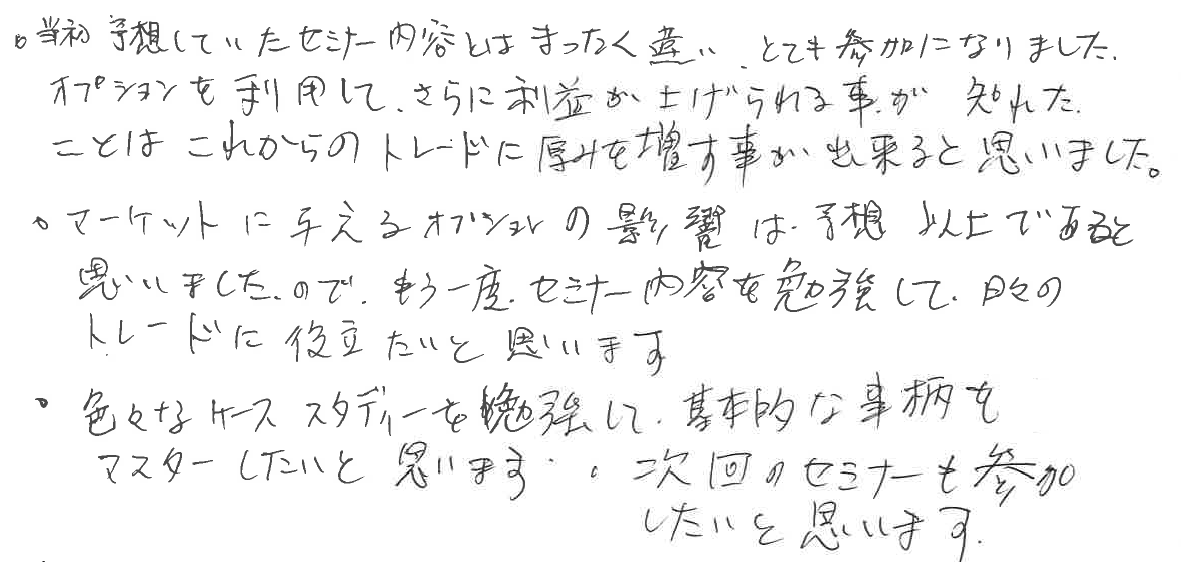 。当初予想していたセミナー内容とはまったく違い、とても参加になりました。
オプションを利用して、さらに利益が上げられる事が知れた
ことはこれからのトレードに厚みを増す事が出来ると思いました。
。マーケットに与えるオプションの影響は、予想以上であると
思いましたので、もう一度、セミナー内容を勉強して、日々の
トレードに役立たいと思います
。色々なケーススタディーを勉強して、基本的な事柄を
マスターしたいと思います・。次回のセミナーも参加
したいと思います。